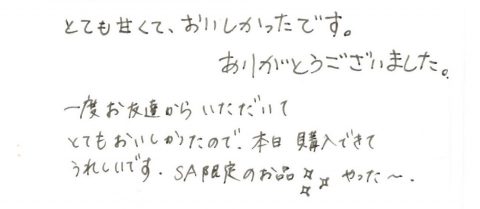 とても甘くて、おいしかったです。
ありがとうございました。
一度お友達から いただいて
とてもおいしかったので、本日 購入できて
うれしいです. SA限定のお品 やった〜.